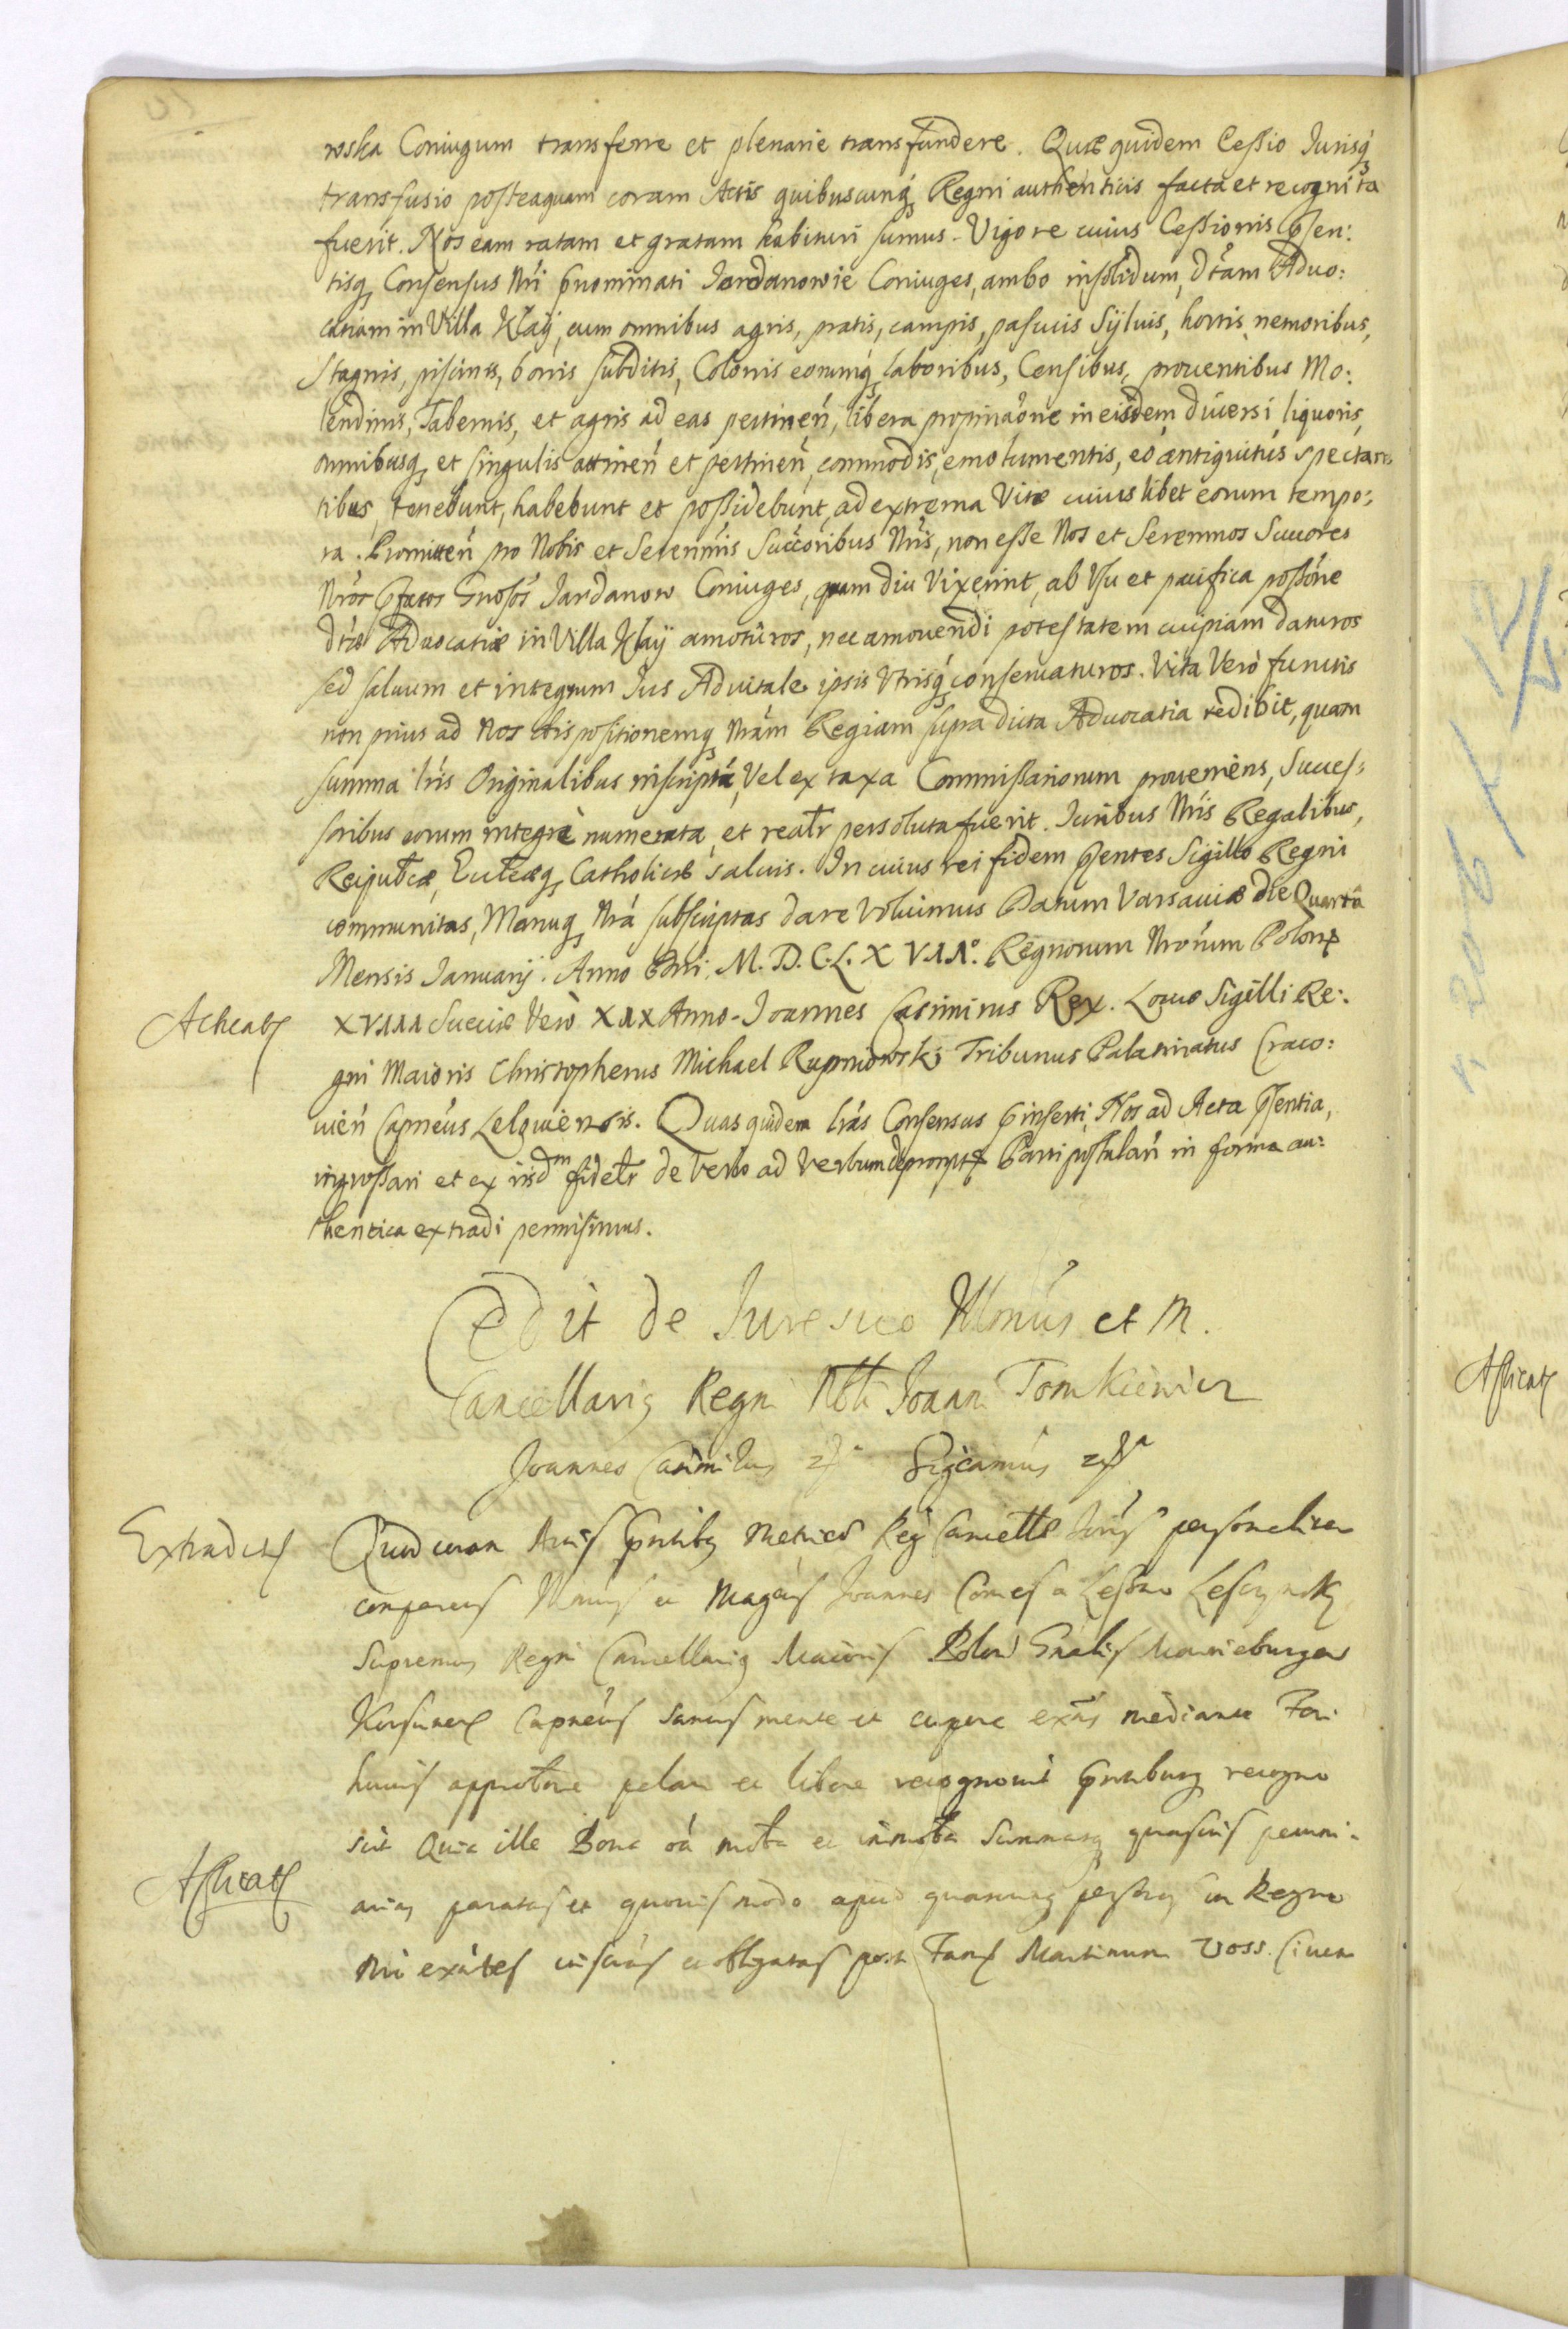 wska Coniugum transferre et plenarie transfundere. Quæ quidem Cessio Jurisq́
transfusio posteaquam coram Actis quibuscunq́ Regni authenticis facta et recognita
fuerit. Nos eam ratam et gratam habituri sumus. Vigore cuius Cessionis p̃sen:
tisq Consensus Nri p̃nominati Jordanowie Coniuges, ambo insolidum, dtam Aduo:
catiam in Villa Kłay, cum omnibus agris, pratis, campis, pascuis Syluis, hortis nemoribus,
Stagnis, piscinis, bonis subditis, Colonis eorumq́ laboribus, Censibus, prouentibus Mo:
lendinis, Tabernis, et agris ad eas pertineń, libera propinaóne in eisdem diuersi liquoris,
omnibusq et singulis attineń et pertineń, commodis, emolumentis, eó antiquitús spectan:
tibus, tenebunt, habebunt et possidebunt, ad extrema Vitæ cuiuslibet eorum tempo:
ra. Promitteń pro Nobis et Serenńis Succoribus Nris, non esse Nos et Serenmos Succores
Nros p̃fatos Gnosos Jardanow Coniuges, quam diu Vixerint, ab Vsu et pacifica possóne
dtæ Aduocatiæ in Villa Kłaÿ amoturos, nec amouendi potestatem cuipiam daturos
sed saluum et integrum Jus Aduitale ipsis Vtrisq́ conseruaturos. Vita Verò functis
non prius ad Nos dispositionemq Nram Regiam supra dicta Aduocatia redibit, quam
summa lris Originalibus inscripta, Vel ex taxa Commissariorum proueniens, Succes:
soribus eorum integrè numerata et realr persoluta fuerit. Juribus Nris Regalibus,
Reiputcæ, Ecclæq Catholicæ saluis. In cuius rei fidem p̃sentes Sigillo Regni
communitas, Manuq Nrá subscriptas dare Voluimus Datum Varsauiæ die Quarta
Mensis Januarij. Anno Dni. M.D.C.L.X VII°. Regnorum Nrorum Polonæ
Acticat XVIII Sueciæ Verò XIX Anno. Joannes Casimirus Rex. Locus Sigilli Re:
gni Maioris Christopherus Michael Rupniowski Tribunus Palatinatus Craco:
uień Capneus Lelouiensis. Quas quidem lras Consensus p̃inserti, Nos ad Acta p̃sentia,
ingrossari et ex iisdm fidelr de Verbo ad Verbum depromptæ Parti postulań in forma au:
thentica extradi permisimus.
Cedit de Jure suo Illmus et M.
Cancellariq Regni Nobli Joanni Tomkiewicz
Joannes Casimirus Sigcamus
Extradit Quod coram Actis p̃ntibq Metrices Regni Cancellæ personaliter
comparens Illmus et Magcus Joannes Comes a Leszno Lesczynsky
Supremus Regni Cancellariq Maioris Polon Gnalis Marieburgen
Korsunen Capneus sanus mente et corpore exns mediante
huius approbone palam et libere recognouit p̃ntibusq recogno
scit Quia ille Bona oá mobła et immobła Summasq quasuis pecuni:
Acticat arias paratas et quouis modo apud quascunq personas in Regno
Nro exntes inscriptas et obligatas post Fam Martinum Voss Ciuem